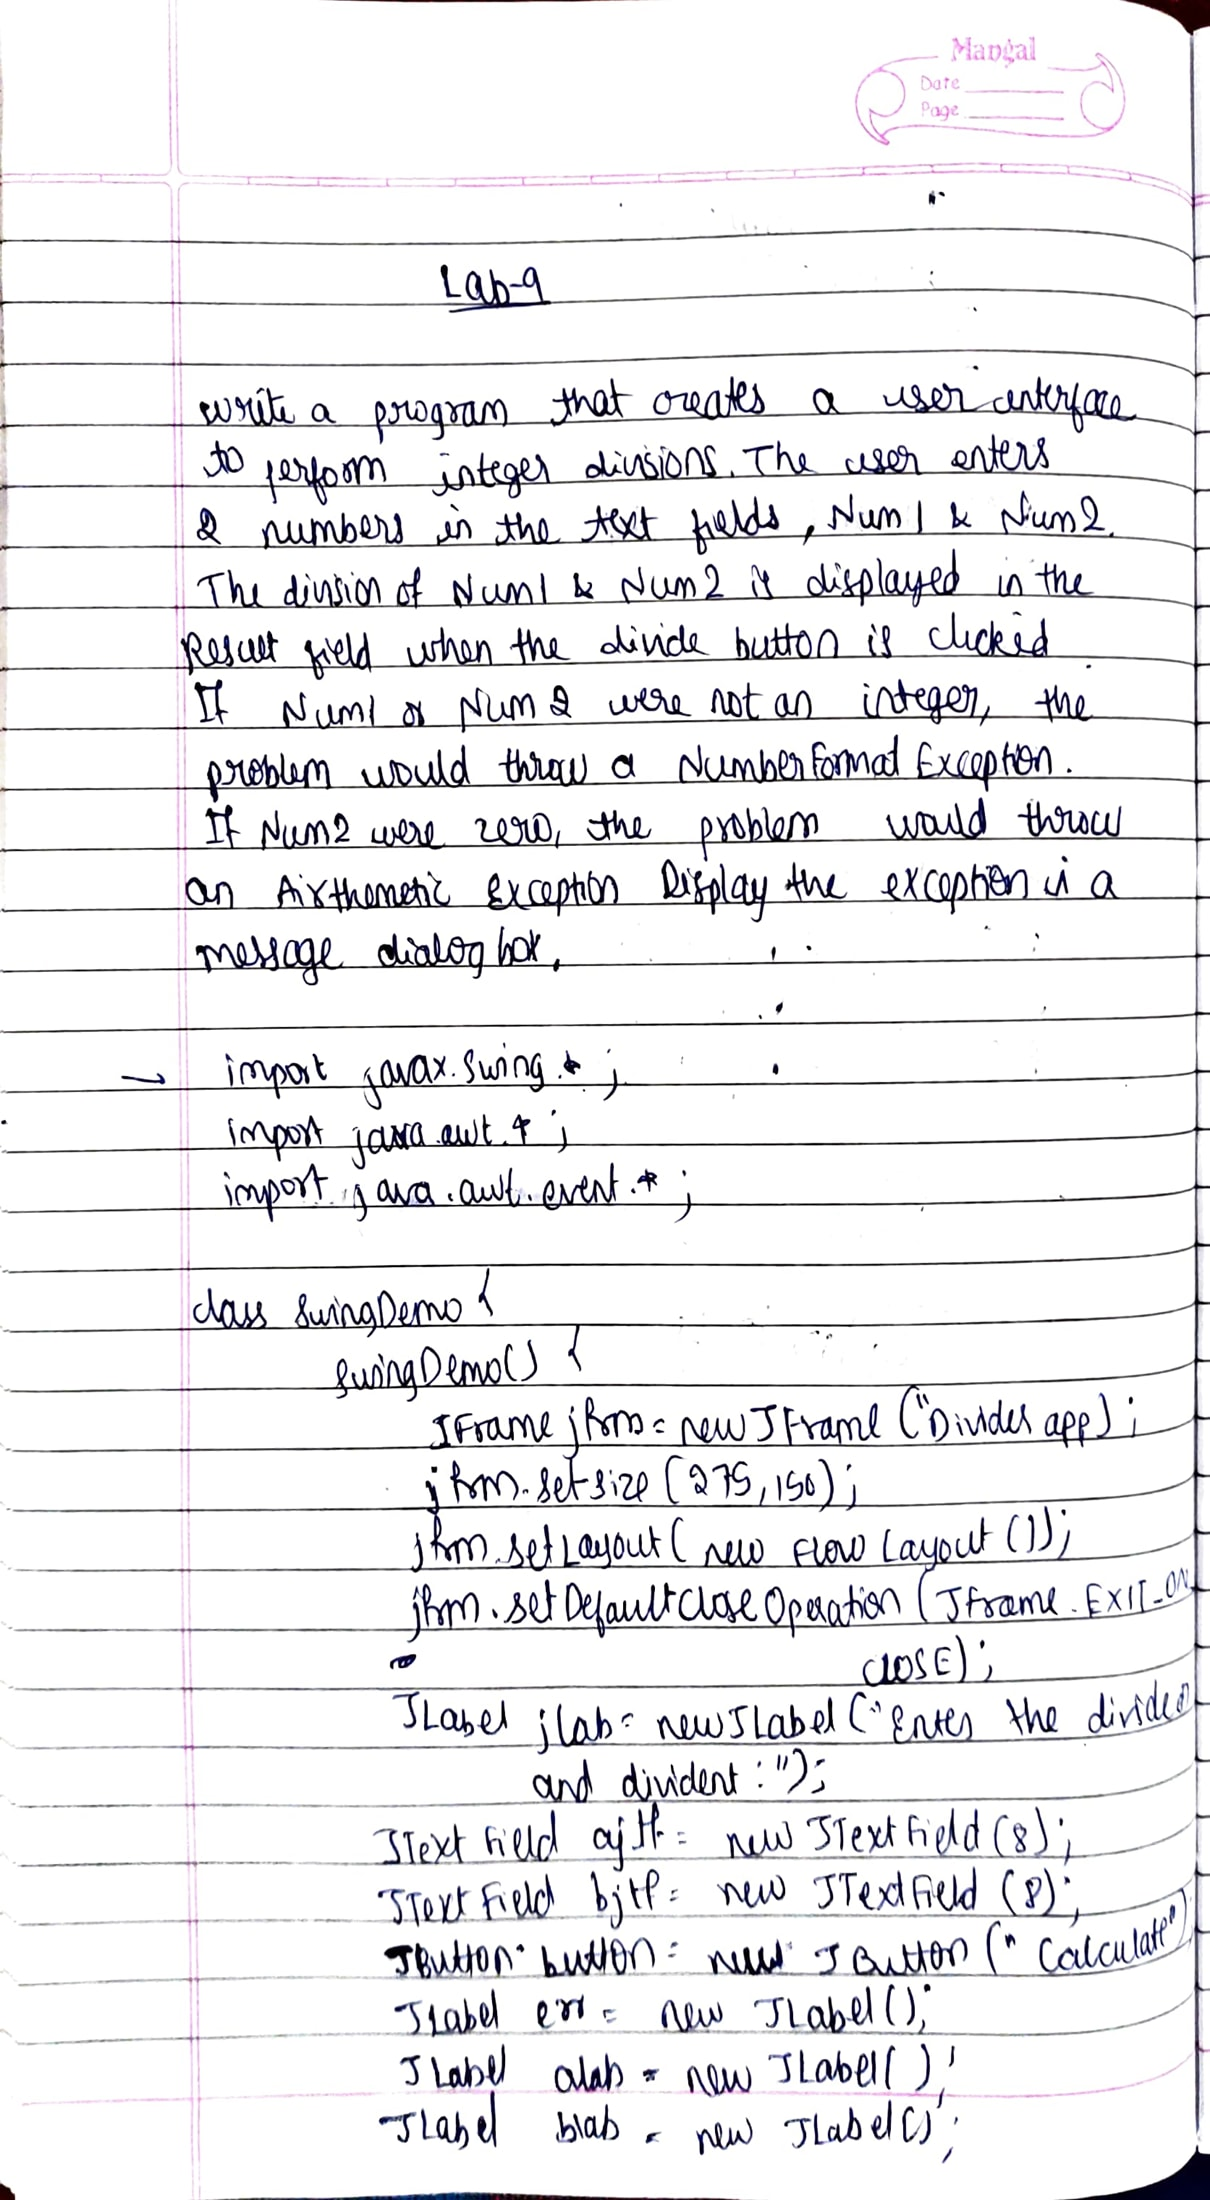 Mangal
Date
Page
Lab-9
write a program that creates a user interface
to perform integer divisions. The user enters
2 numbers in the text fields, Num1 & Num2.
The division of Num1 & Num2 is displayed in the
Result field when the divide button is clicked
If Num1 or Num2 were not an integer, the
problem would throw a NumberFormat Exception.
If Num2 were zero, the problem would throw
an Airthemetic Exception Display the exception in a
message dialog box.
→ import javax.swing.*;
import java.awt.*;
import java.awt.event.*;
class SwingDemo {
SwingDemo() {
JFrame jfrm = new JFrame ("Divider app);
jfrm.setsize (275, 150);
jfrm.setLayout( new FlowLayout ());
jfrm.setDefaultCloseOperation (JFrame.EXIT_ON
CLOSE);
JLabel jlab = new JLabel ("Enter the divider
and divident :");
JTextField ajtf = new JTextField (8);
JTextField bjtf = new JTextField (8);
JButton button = new JButton (" Calculate")
JLabel err = new JLabel ();
JLabel alab = new JLabel ( );
JLabel blab = new JLabel();